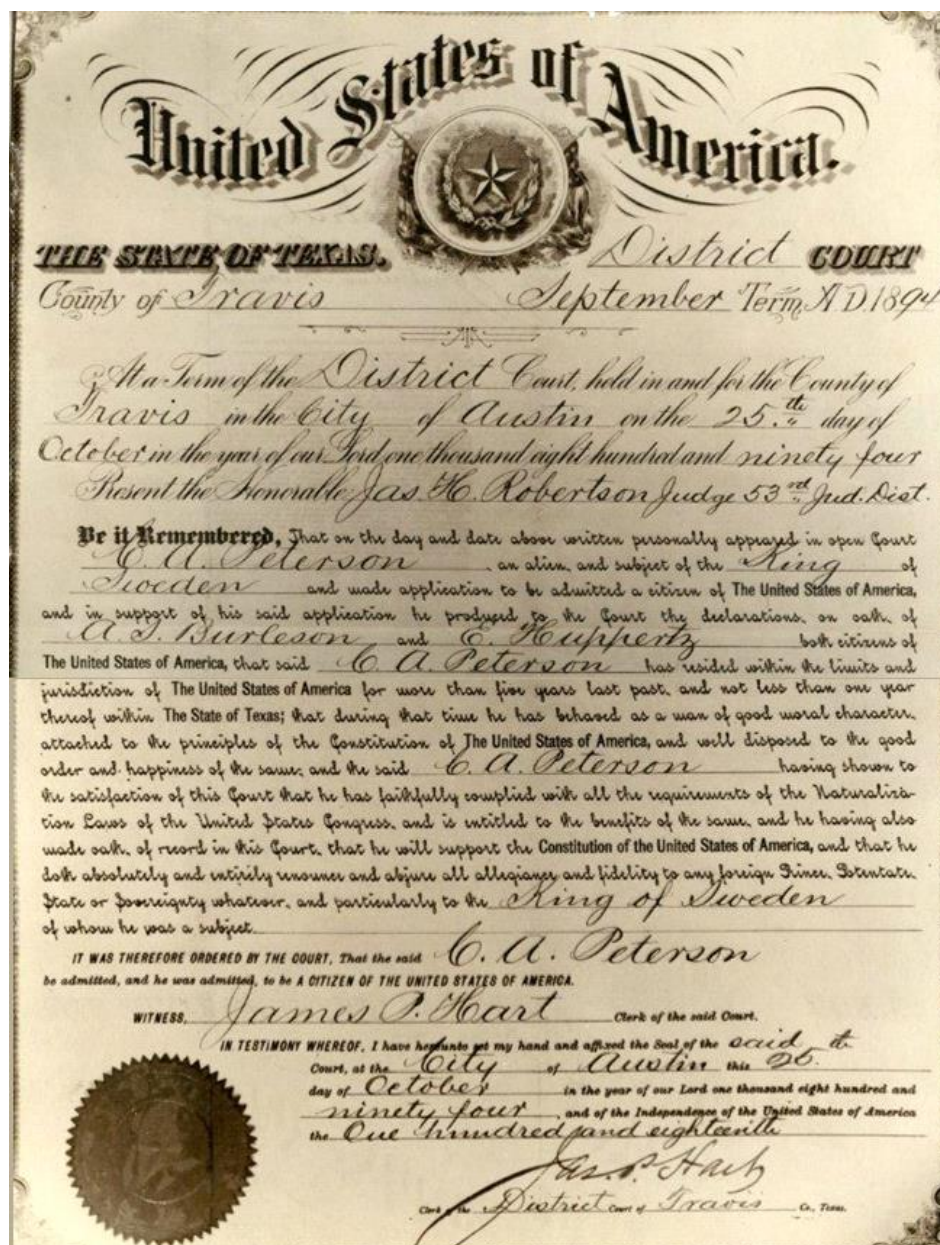 United States of America.
THE STATE OF TEXAS. District COURT
County of Travis September Term, A.D. 1894
At a Term of the District Court, held in and for the County of
Travis in the City of Austin on the 25.th day of
October in the year of our Lord one thousand eight hundred and ninety four
Present the Honorable Jas. H. Robertson Judge 53rd Jud. Dist.
Be it Remembered, That on the day and date above written personally appeared in open Court
C. A. Peterson an alien, and subject of the King of
Sweden and made application to be admitted a citizen of The United States of America,
and in support of his said application he produced to the Court the declarations, on oath, of
A. S. Burleson and E. Huppertz both citizens of
The United States of America, that said C. A. Peterson has resided within the limits and
jurisdiction of The United States of America for more than five years last past, and not less than one year
thereof within The State of Texas; that during that time he has behaved as a man of good moral character,
attached to the principles of the Constitution of The United States of America, and well disposed to the good
order and happiness of the same; and the said C. A. Peterson having shown to
the satisfaction of this Court that he has faithfully complied with all the requirements of the Naturaliza-
tion Laws of the United States Congress, and is entitled to the benefits of the same, and he having also
made oath, of record in this Court, that he will support the Constitution of the United States of America, and that he
doth absolutely and entirily renounce and abjure all allegiance and fidelity to any foreign Prince, Potentate,
State or Sovereignty whatever, and particularly to the King of Sweden
of whom he was a subject.
IT WAS THEREFORE ORDERED BY THE COURT, That the said C. A. Peterson
be admitted, and he was admitted, to be A CITIZEN OF THE UNITED STATES OF AMERICA.
WITNESS, James P. Hart Clerk of the said Court.
IN TESTIMONY WHEREOF, I have hereunto set my hand and affixed the Seal of the said
Court, at the City of Austin this 25th
day of October in the year of our Lord one thousand eight hundred and
ninety four, and of the Independence of the United States of America
the One hundred and eighteenth
Jas. P. Hart
Clerk of the District Court of Travis Co., Texas.